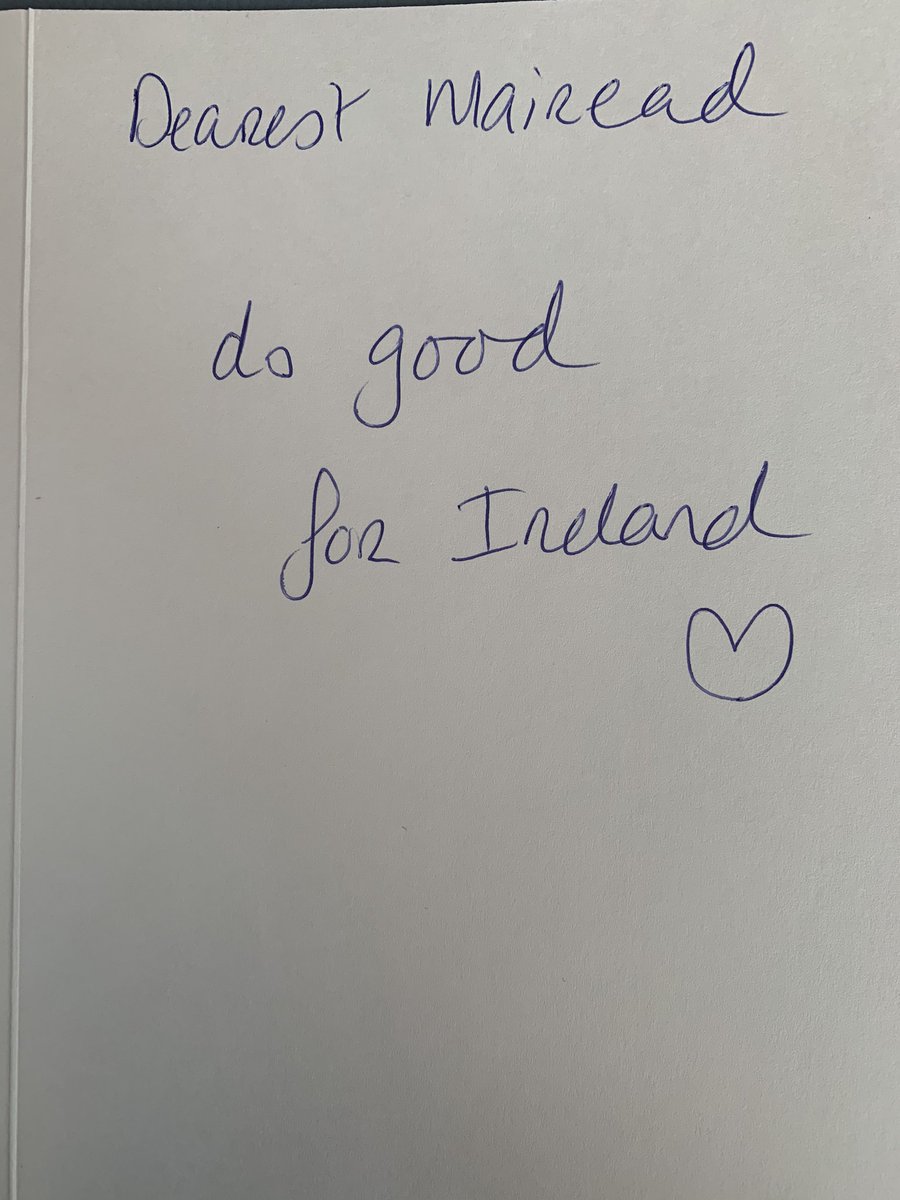 Dearest Mairead
do good
for Ireland